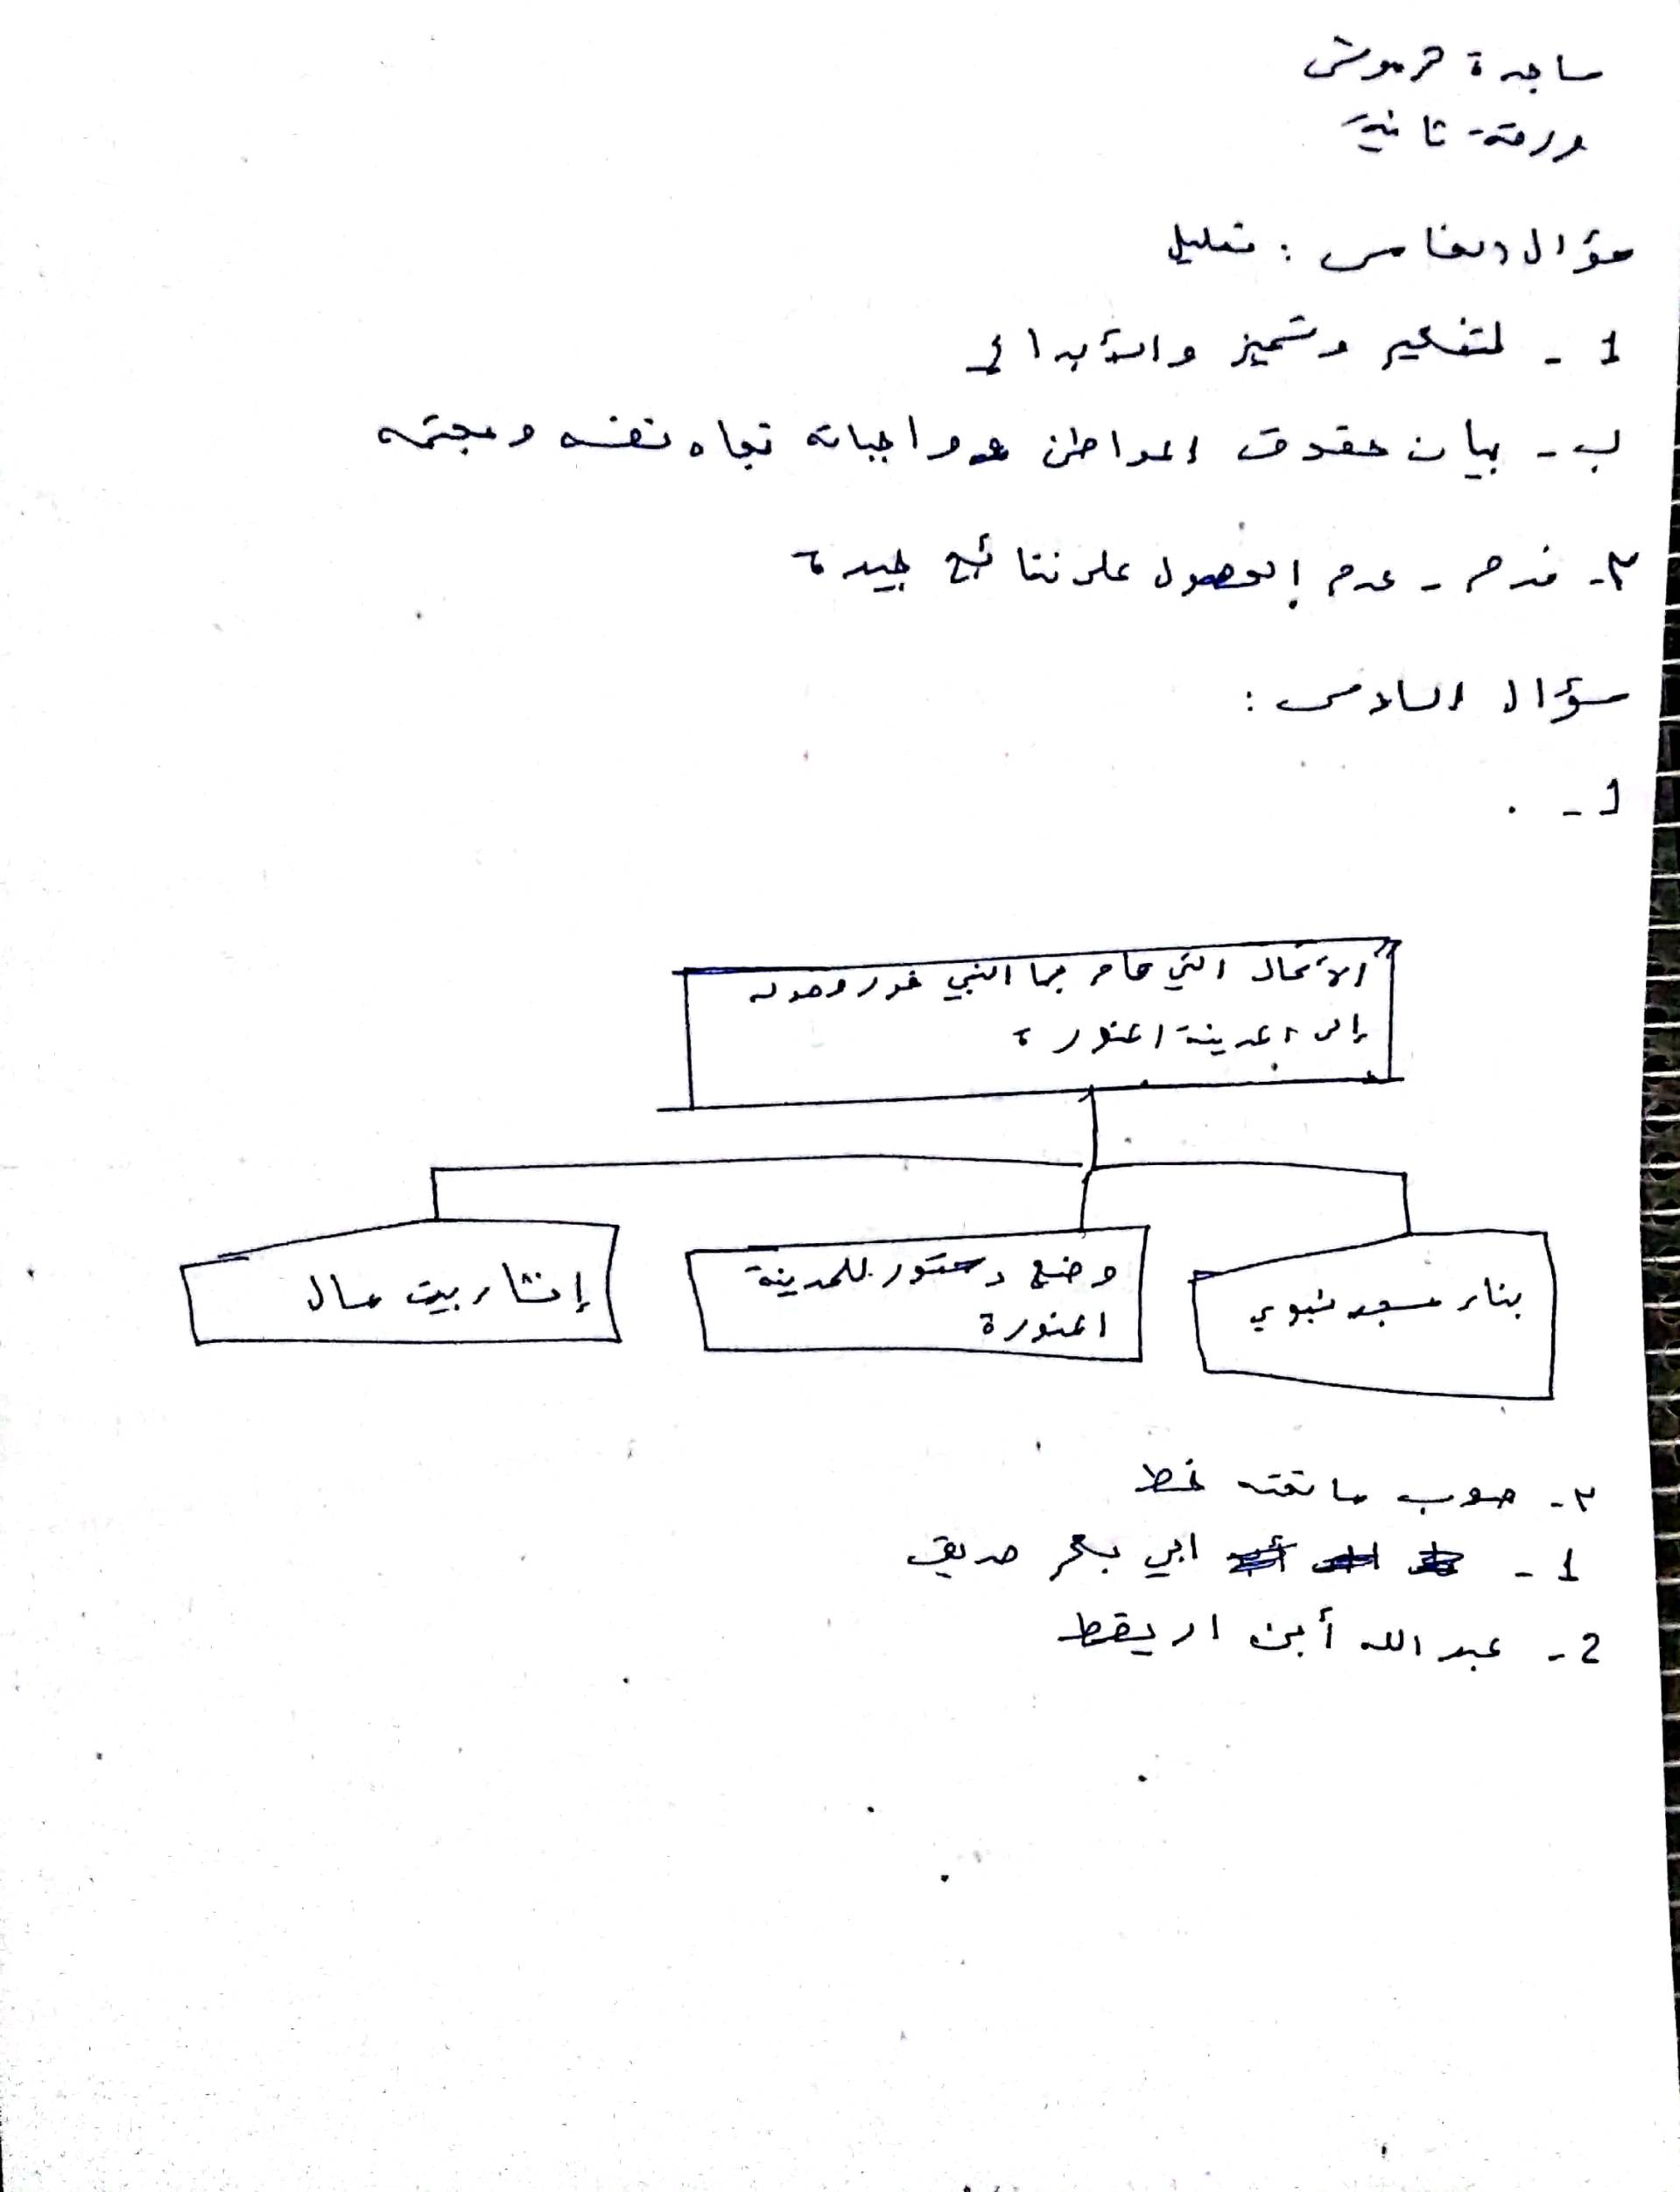 ساجدة
ورقة ثانية
سؤال الخامس : تعليل
1 - لتفكير وتميز والأبداع
ب - بيان حقوق المواطن وواجباته تجاه نفسه ومجتمعه
٢- ندم - عدم الحصول على نتائج جيدة
سؤال السادس :
1 - .
الأعمال التي قام بها النبي فور وصوله
إلى المدينة المنورة
بناء مسجد نبوي
وضع دستور للمدينة
المنورة
إنشاء بيت مال
٢- صوب ما تحته خط
1 - ابي بكر صديق
2 - عبد الله أبن اريقط